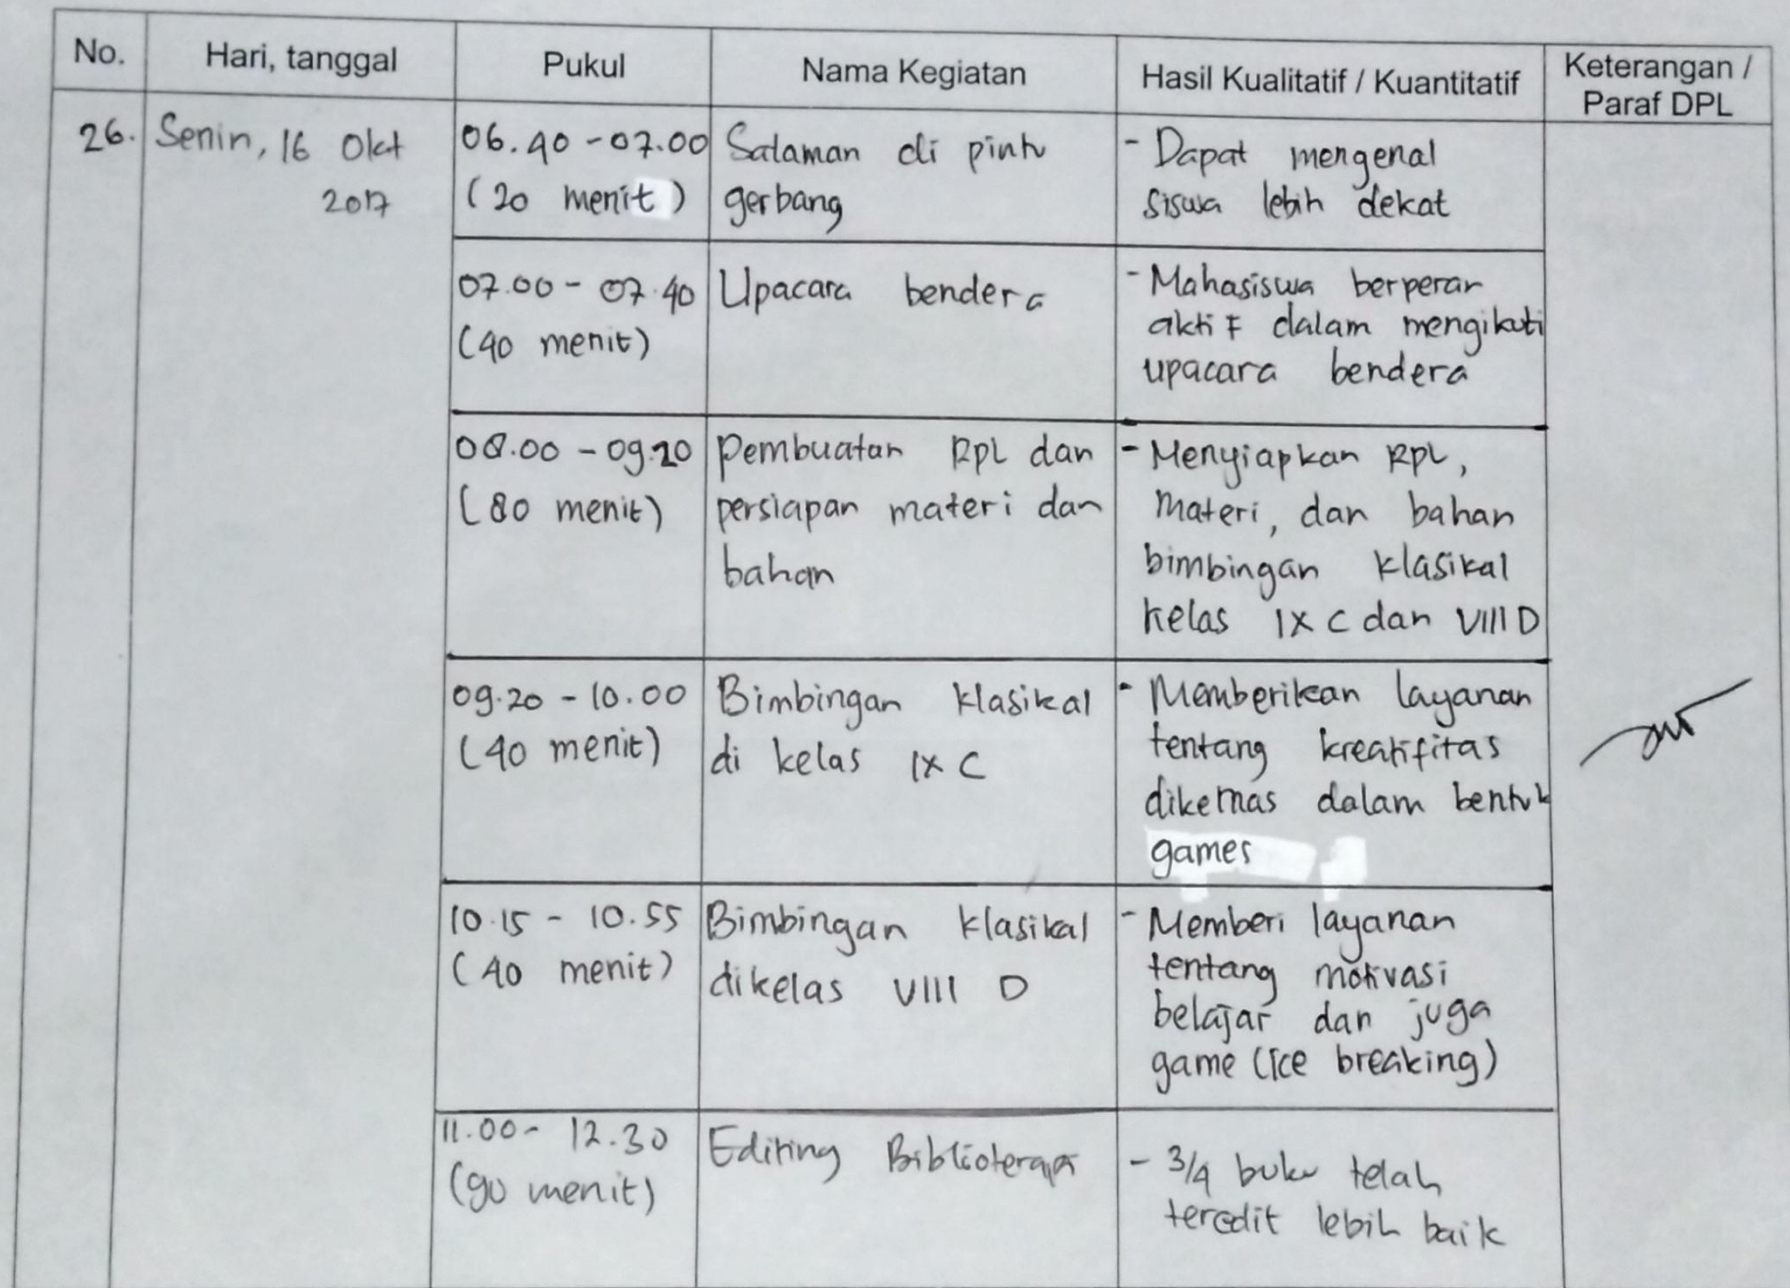 No. Hari, tanggal Pukul Nama Kegiatan Hasil Kualitatif / Kuantitatif Keterangan /
Paraf DPL
26. Senin, 16 Okt
2017
06.40 - 07.00
(20 menit)
Salaman di pintu
gerbang
- Dapat mengenal
siswa lebih dekat
07.00 - 07.40
(40 menit)
Upacara bendera
- Mahasiswa berperan
aktif dalam mengikuti
upacara bendera
08.00 - 09.20
(80 menit)
Pembuatan RPL dan
persiapan materi dan
bahan
- Menyiapkan RPL,
materi, dan bahan
bimbingan klasikal
kelas IX C dan VIII D
09.20 - 10.00
(40 menit)
Bimbingan klasikal
di kelas IX C
- Memberikan layanan
tentang kreatifitas
dikemas dalam bentuk
games
10.15 - 10.55
(40 menit)
Bimbingan klasikal
dikelas VIII D
- Memberi layanan
tentang motivasi
belajar dan juga
game (Ice breaking)
11.00 - 12.30
(90 menit)
Editing Biblioterapi
- 3/4 buku telah
teredit lebih baik